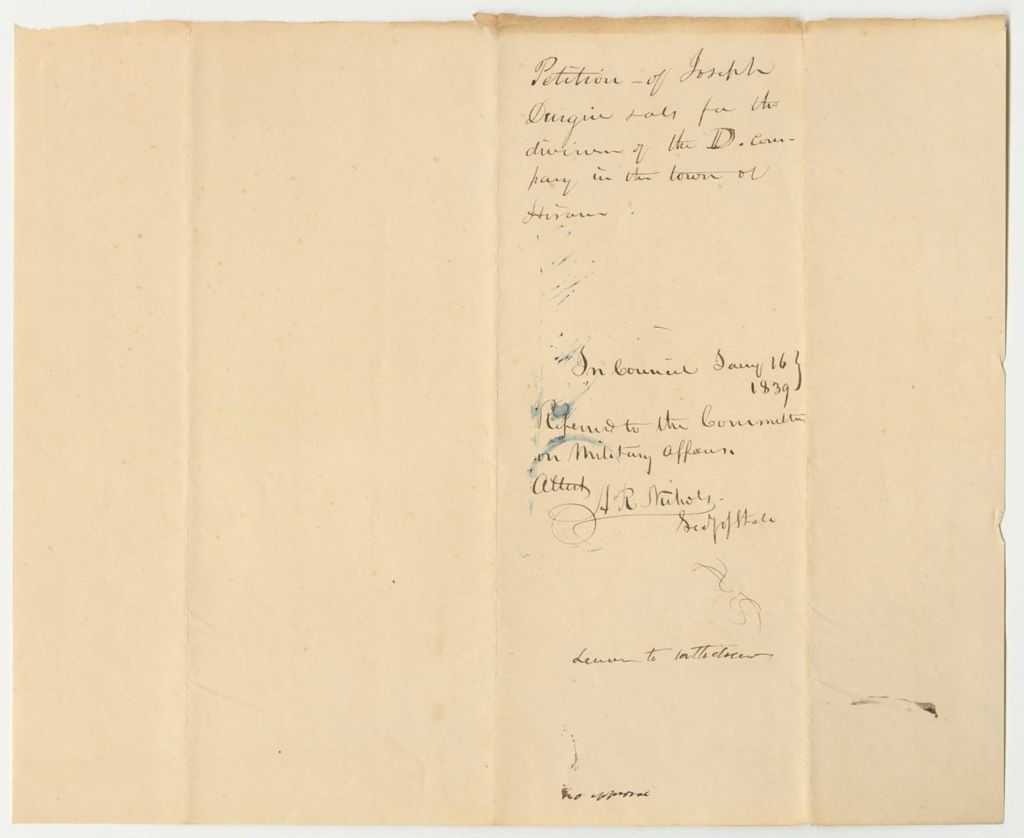 Petition - of Joseph
Durgin & als for the
division of the D. com-
pany in the town of
Hiram.
In Council Jany 16 }
1839
Referred to the Committee
on Military Affairs.
Attest
A R Nichols.
Secy of State
Leave to withdraw
no approval